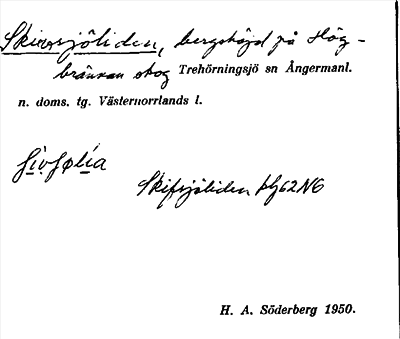 Skivsjöliden, bergshöjd på Hög-
brännan skog Trehörningsjö sn Ångermanl.
n. doms. tg. Västernorrlands l.
Skifsjöliden blg62NG
H. A. Söderberg 1950.